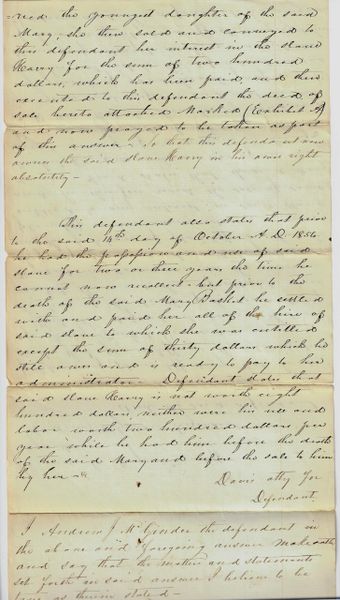 =ried the youngest daughter of the said
Mary; she then sold and conveyed to
this defendant her interest in the slave
Harry for the sum of two hundred
dollars, which has been paid, and then
executed to this defendant the deed of
sale hereto attached Marked (Exhibit A)
and now prayed to be taken as part
of this answer – So that this defendant now
owns the said slave Harry in his own right
absolutely –
This defendant also states that prior
to the said 14th day of October A.D. 1856
he had the possession and use of said
slave for two or three years the time he
cannot now recollect – but prior to the
death of the said Mary Basket he settled
with and paid her all of the hire of
said slave to which she was entitled
except the sum of thirty dollars which he
still owes and is ready to pay to her
administrator. Defendant states that
said slave Harry is not worth eight
hundred dollars, neither were his use and
labor worth two hundred dollars per
year while he had him before the death
of the said Mary and before the sale to him
by her –
Davis atty for
Defendant
I Andrew J. the defendant in
the above and foregoing answer make oath
and say that the matters and statements
set forth in said answer I believe to be
true as therein stated –